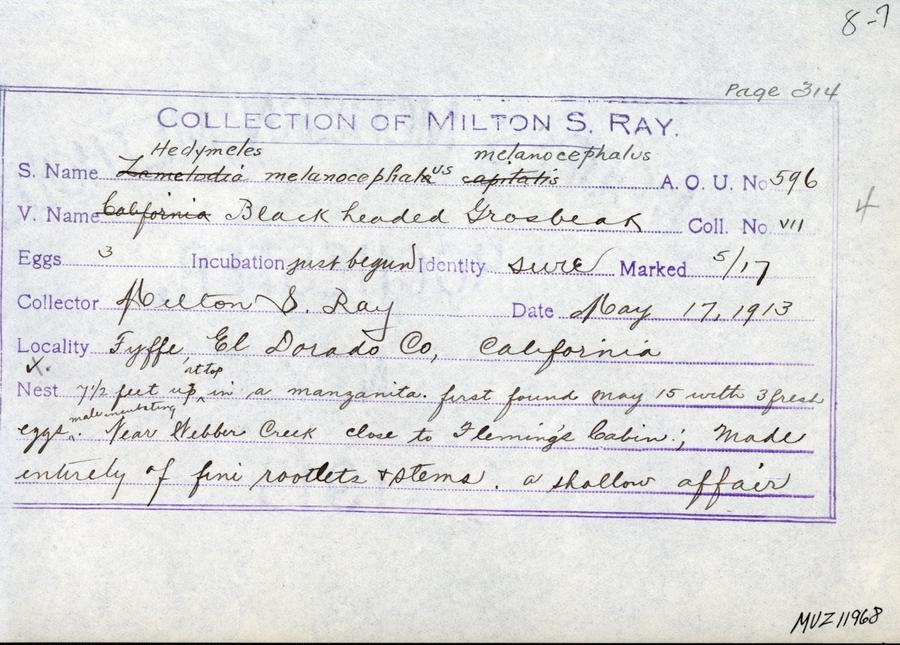 8-7
Page 314
COLLECTION OF MILTON S. RAY.
Hedymeles melanocephalus
S. Name Zamelodia melanocephalaus capitalis A. O. U. No 596
4
V. Name California Black headed Grosbeak Coll. No. VII
Eggs 3 Incubation just begun Identity sure Marked 5/17
Collector Milton S. Ray Date May 17, 1913
Locality Fyffe, El Dorado Co, California
X. at top
Nest 7 1/2 feet up in a manzanita. first found May 15 with 3 fresh
male incubating
eggs. Near Webber Creek close to Fleming's Cabin.; Made
entirely of fine rootlets & stems. a shallow affair
MVZ 11968